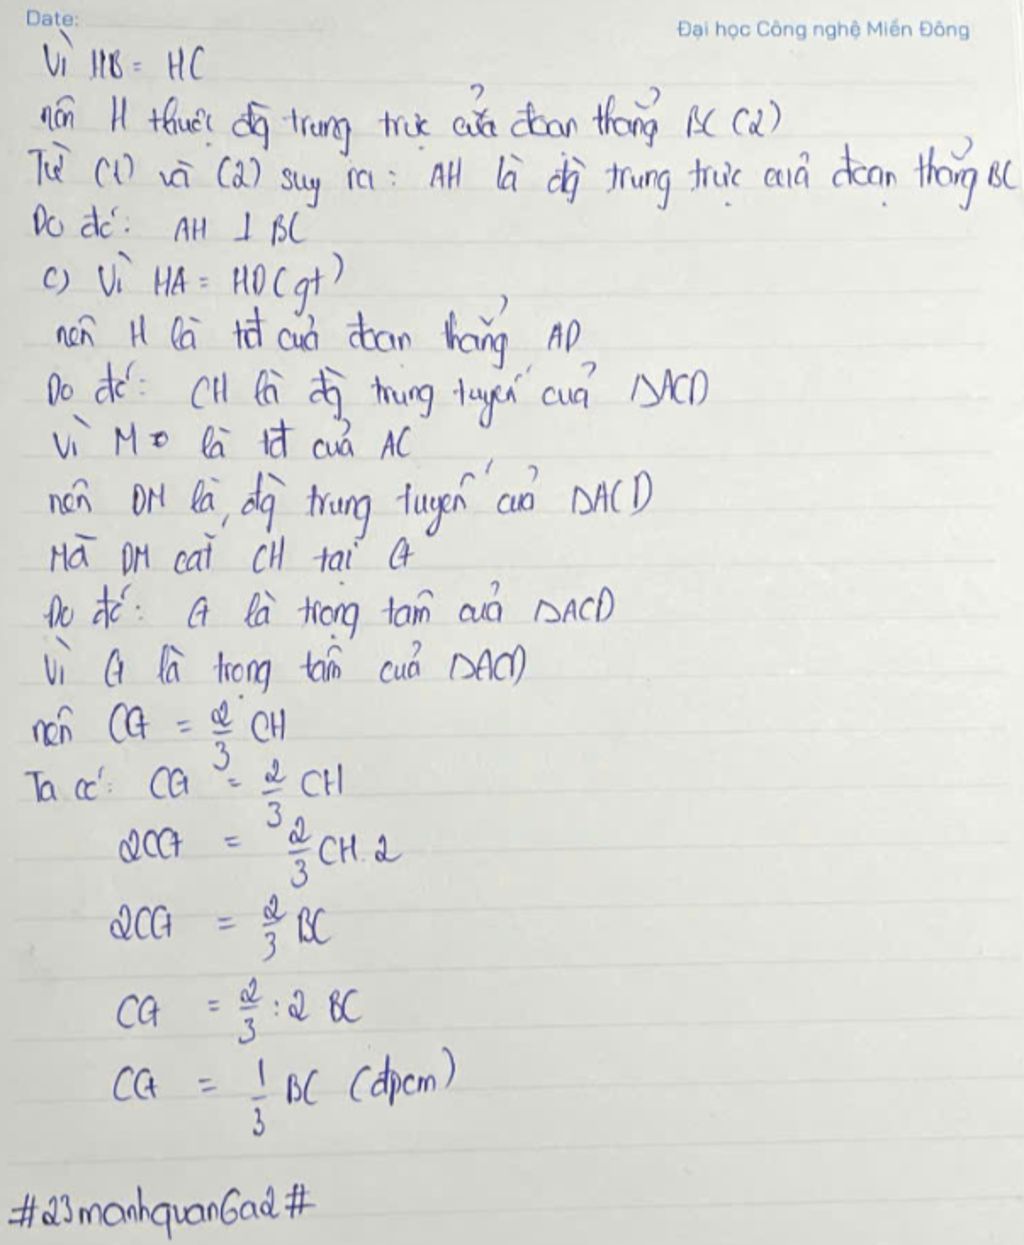 Date:
Đại học Công nghệ Miền Đông
Vì HB = HC
nên H thuộc đg trung trực của đoạn thẳng BC (2)
Từ (1) và (2) suy ra: AH là đg trung trực của đoạn thẳng BC
Do đó: AH ⊥ BC
c) Vì HA = HD (gt)
nên H là tđ của đoạn thẳng AD
Do đó: CH là đg trung tuyến của ΔACD
Vì M là tđ của AC
nên DM là đg trung tuyến của ΔACD
Mà DM cắt CH tại G
Do đó: G là trọng tâm của ΔACD
Vì G là trọng tâm của ΔACD
nên CG = 2/3 CH
Ta có: CG = 2/3 CH
2CG = 2/3 CH.2
2CG = 2/3 BC
CG = 2/3 : 2 BC
CG = 1/3 BC (đpcm)
#23manhquan6a2#